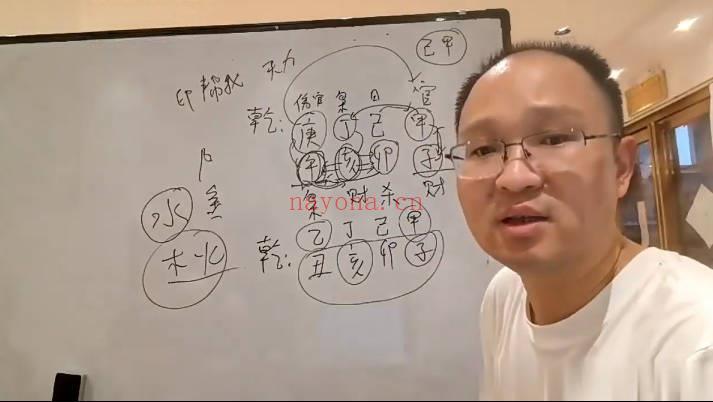 己甲
印帮我
伤官 枭 日 官
乾: 庚 丁 己 甲
午 亥 卯 子
枭 财 杀 财
nayona.cn
乙 丁 己 甲
乾: 丑 亥 卯 子
水 金
木火